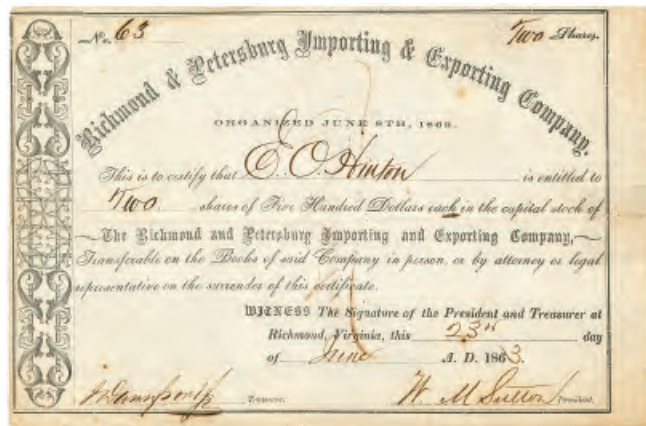 No. 63 Two Shares.
Richmond & Petersburg Importing & Exporting Company.
ORGANIZED JUNE 8TH, 1863.
This is to certify that E. O. Hinton is entitled to
Two shares of Five Hundred Dollars each in the capital stock of
The Richmond and Petersburg Importing and Exporting Company,
Transferable on the Books of said Company in person, or by attorney or legal
representative on the surrender of this certificate.
WITNESS The Signature of the President and Treasurer at
Richmond, Virginia, this 23rd day
of June A. D. 1863.
Treasurer. W. M. Sutton President.